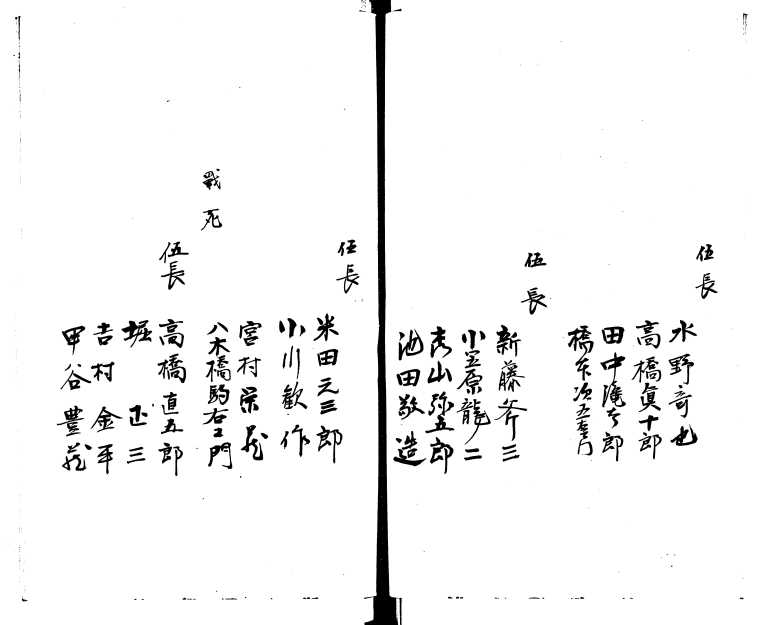 伍長
水野奇也
高橋眞十郎
田中滝太郎
橋本次五左門
伍長
新藤斧三
小笠原龍二
青山弥五郎
池田敬造
伍長
米田元三郎
小川歓作
宮村栄蔵
戦死
八木橋駒右ヱ門
伍長
高橋直五郎
堀正三
吉村金平
甲谷豊蔵